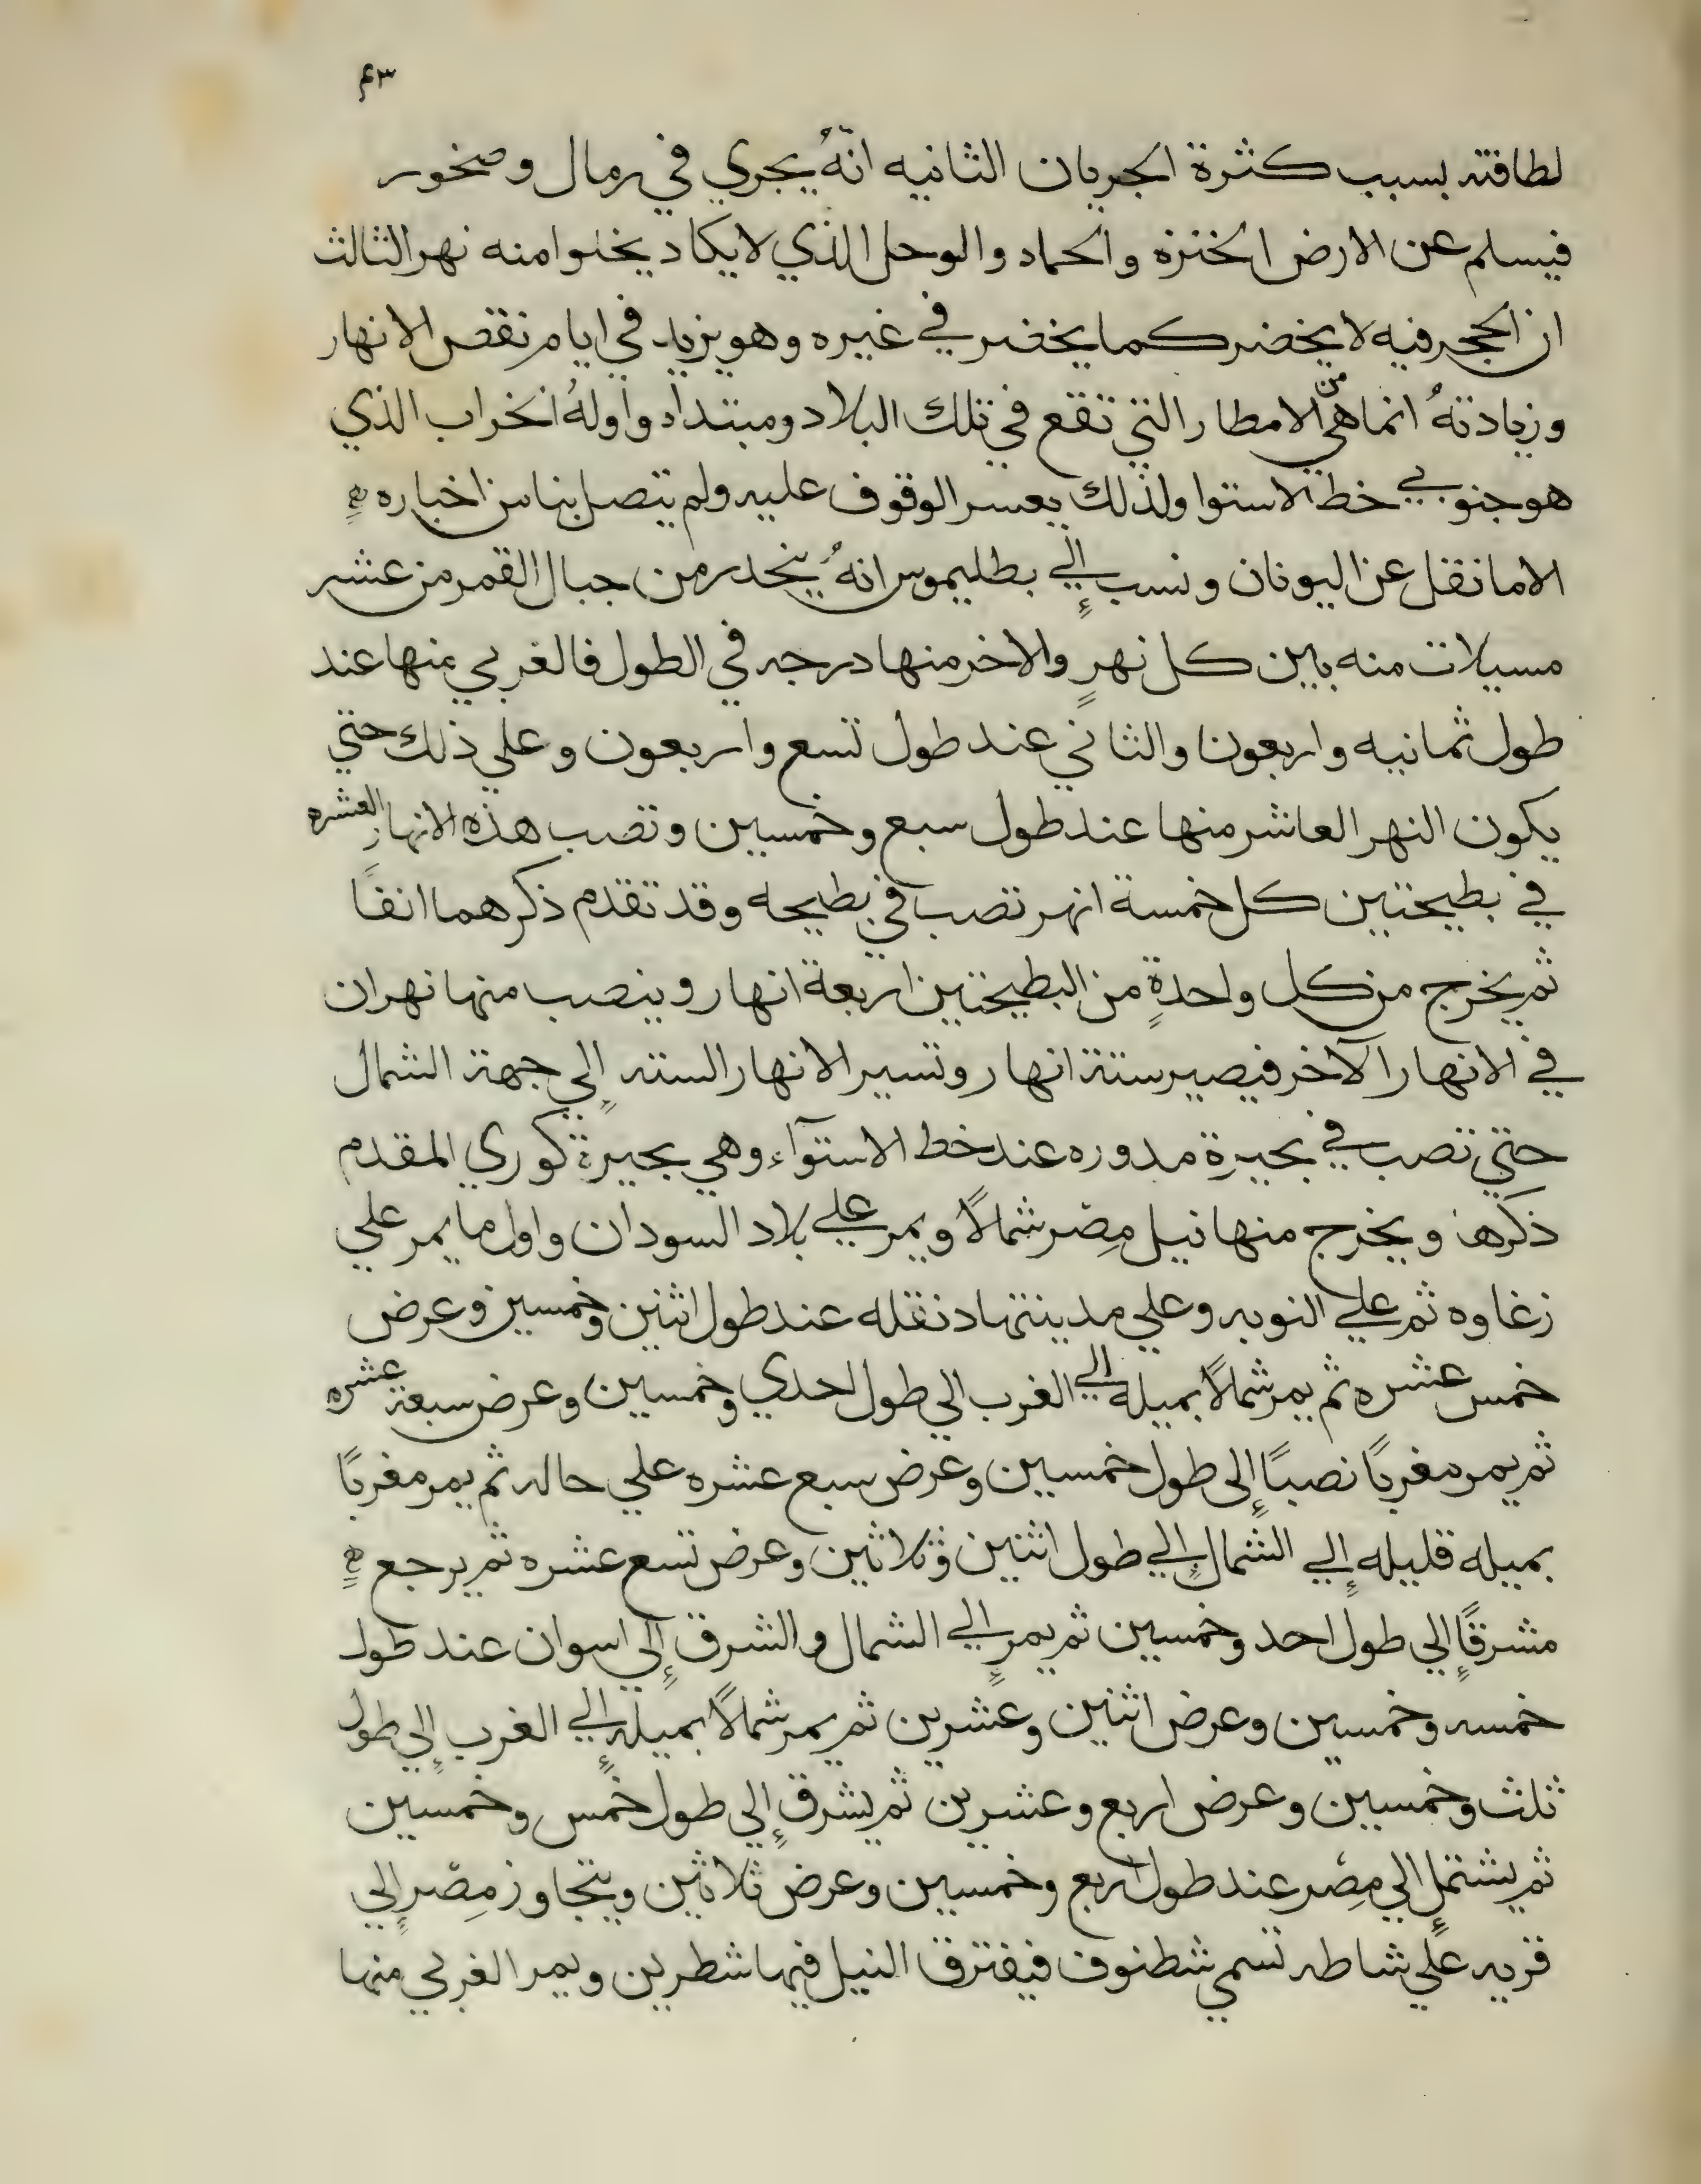 ٤٣
لطافته بسبب كثرة الجريان الثانيه انهُ يجري في رمال وصخور
فيسلم عن الارض الخنزه والحماه والوحل الذي لايكاد يخلوا منه نهر الثالث
ان الحجر فيه لا يخضر كما يخضر في غيره وهو يزيد في ايام نقص الانهار
وزيادتهُ انما هي من الامطار التي تقع في تلك البلاد ومبتداه واولهُ الخراب الذي
هو جنوبي خط الاستوا ولذلك يعسر الوقوف عليه ولم يتصل بنا من اخباره
الا ما نقل عن اليونان ونسب إلي بطليموس انهُ ينحدر من جبال القمر من عشر
مسيلات منه بين كل نهرٍ والاخر منها درجه في الطول فالغربي منها عند
طول ثمانيه واربعون والثاني عند طول تسع واربعون وعلي ذلك حتي
يكون النهر العاشر منها عند طول سبع وخمسين وتصب هذه الانهار العشره
في بطيحتين كل خمسة انهر تصب في بطيحه وقد تقدم ذكرهما انفًا
ثم يخرج من كل واحدةٍ من البطيحتين اربعة انهار وينصب منها نهران
في الانهار الآخر فيصير ستة انهار وتسير الانهار السته إلي جهة الشمال
حتي تصب في بحيرة مدوره عند خط الاستوآء وهي بحيرة كوري المقدم
ذكرها ويخرج منها نيل مِصر شمالًا ويمر علي بلاد السودان واول ما يمر علي
زغاوه ثم علي النوبه وعلي مدينتها دنقله عند طول اثنين وخمسين وعرض
خمس عشره ثم يمر شمالًا بميله إلي الغرب الي طول احدي وخمسين وعرض سبعة عشره
ثم يمر مغربًا نصبًا إلى طول خمسين وعرض سبع عشره علي حاله ثم يمر مغربًا
بميله قليله إلي الشمال إلي طول اثنين وثلاثين وعرض تسع عشره ثم يرجع
مشرقًا إلي طول احد وخمسين ثم يمر إلي الشمال والشرق إلي اسوان عند طول
خمسه وخمسين وعرض اثنين وعشرين ثم يمر شمالًا بميله إلي الغرب إلي طول
ثلث وخمسين وعرض اربع وعشرين ثم يشرق إلي طول خمس وخمسين
ثم يشتمل إلي مِصْر عند طول اربع وخمسين وعرض ثلاثين ويتجاوز مِصْر إلي
قريه علي شاطه تسمي شطنوف فيفترق النيل فيها شطرين ويمر الغربي منها